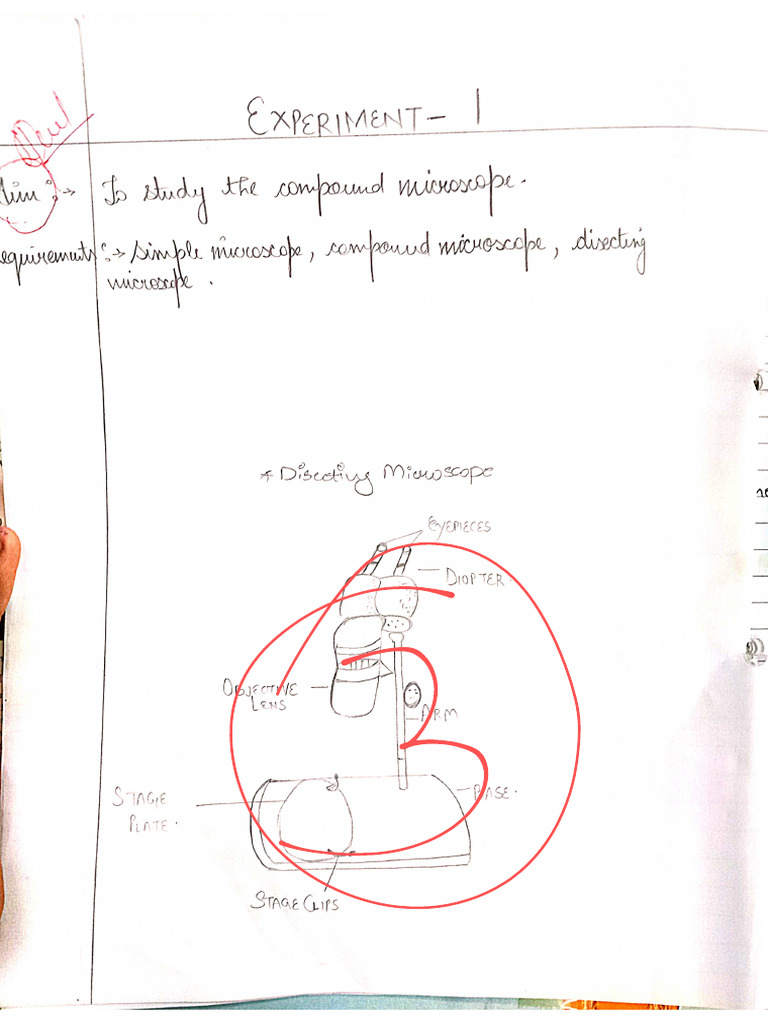 EXPERIMENT - 1
Aim :→ To study the compound microscope.
requirements :→ simple microscope, compound microscope, disecting
microscope .
* Disecting Microscope
EYEPIECES
DIOPTER.
OBJECTIVE
LENS
ARM
STAGE
PLATE.
BASE.
STAGE CLIPS
3